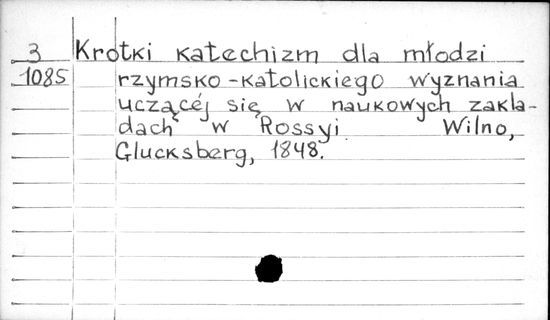 3 Krotki katechizm dla młodzi
1085 rzymsko-katolickiego wyznania
uczącéj się w naukowych zakla-
dach w Rossyi. Wilno,
Glucksberg, 1848.